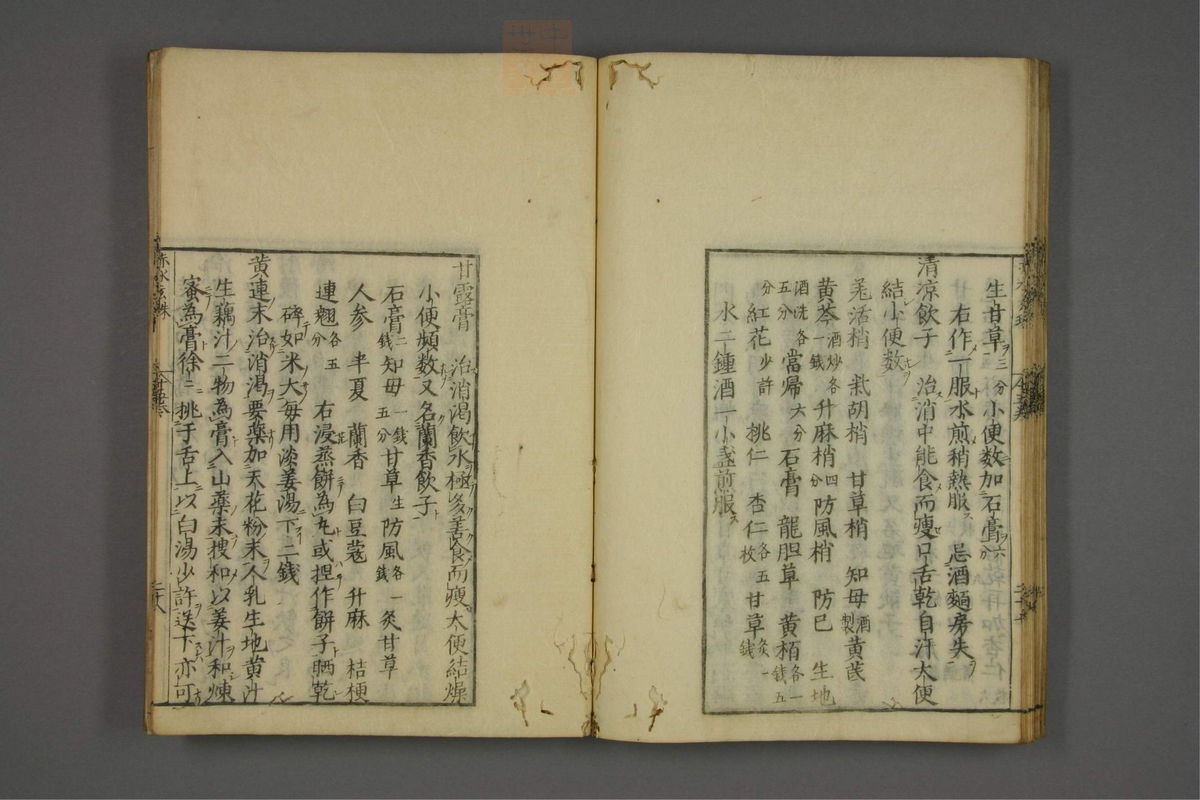 生甘草三分小便数加石膏六分
右作一服水煎稍熱服忌酒麵房失
清凉飲子　治消中能食而瘦口舌乾自汗大便
結小便数
羌活梢　柴胡梢　甘草梢　知母酒製黄芪
黄芩酒炒各一錢升麻梢四分防風梢　防已　生地
酒洗各五分當帰六分石膏　龍胆草　黄栢各一錢五
分紅花少許　桃仁　杏仁各五枚甘草炙一錢
水二鍾酒一小盞煎服
甘露膏　治消渴飲水極多善食而瘦大便結燥
小便頻数又名蘭香飲子
石膏二錢知母一錢五分甘草生防風各一錢炙甘草
人参　半夏　蘭香　白豆蔻　升麻　桔梗
連翹各五分　右浸蒸餅為丸或捏作餅子晒乾
碎如米大毎用淡姜湯下二錢
黄連末治消渴要藥加天花粉末人乳生地黄汁
生藕汁二物為膏入山藥末搜和以姜汁和煉
蜜為膏徐二挑于舌上以白湯少許送下亦可
赤水玄珠
二十八